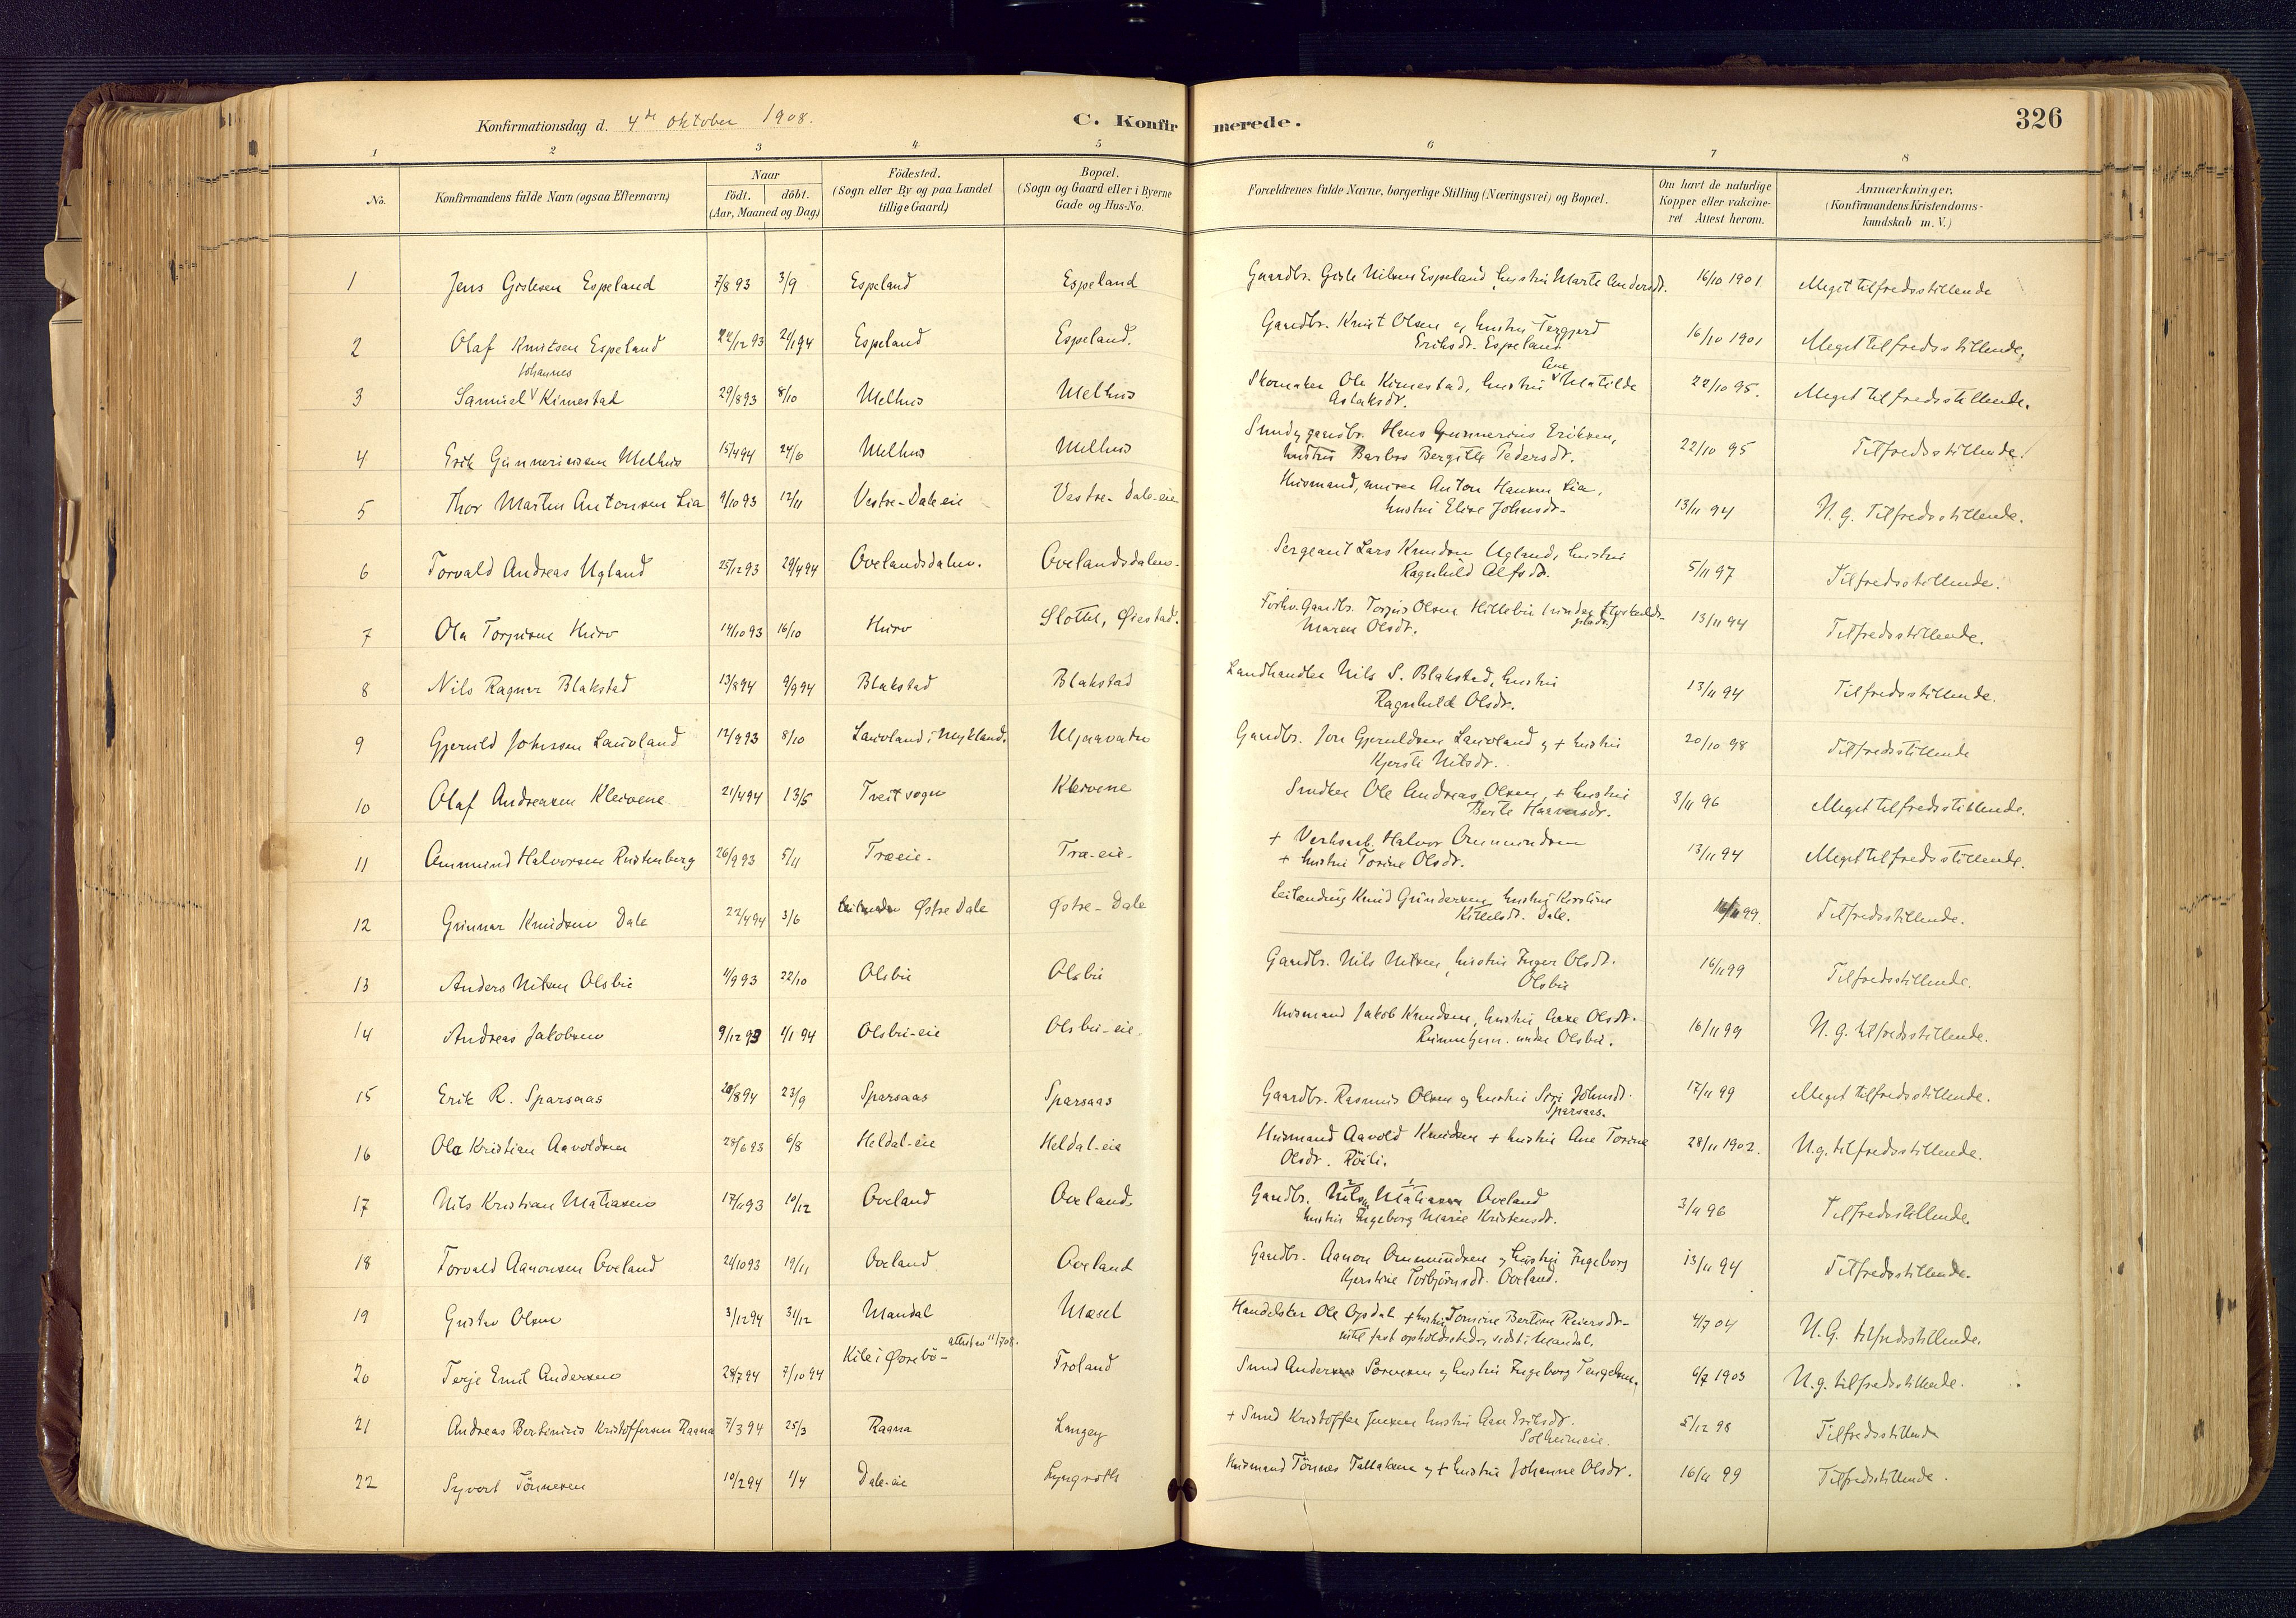 Konfirmationsdag d. 4de Oktober 1908. C. Konfirmerede. 326
1 2 3 4 5 6 7 8
No. Konfirmandens fulde Navn (ogsaa Efternavn) Naar født. døbt. (Aar, Maaned og Dag) Födested. (Sogn eller By og paa Landet tillige Gaard) Bopæl. (Sogn og Gaard eller i Byerne Gade og Hus-No. Forældrenes fulde Navne, borgerlige Stilling (Næringsvei) og Bopæl. Om havt de naturlige Kopper eller vakcineret Attest herom. Anmærkninger. (Konfirmandens Kristendomskundskab m. V.)
1 Jens Gislesen Espeland 7/8 93 3/9 Espeland Espeland Gaardbr. Gisle Nilsen Espeland, hustru Marte Andersdt. 16/10 1901 Meget tilfredsstillende
2 Olaf Knutsen Espeland 22/12 93 21/1 94 Espeland Espeland. Gaardbr. Knut Olsen og hustru Tergjerd
Eriksdt. Espeland 16/10 1901 Meget tilfredsstillende.
3 Samuel Johannes Kimestad 29/8 93 8/10 Melhus Melhus Skomaker Ole Kimestad, hustru Ane Matilde
Aslaksdt. 22/10 95. Meget tilfredsstillende.
4 Erik Gunneriussen Melhus 15/4 94 24/6 Melhus Melhus Smed og gaardbr. Hans Gunnerius Eriksen,
hustru Barbro Bergitte Pedersdt. 22/10 95 Tilfredsstillende.
5 Thor Martin Antonsen Lia 9/10 93 12/11 Vestre-Dale eie Vestre-Dale-eie Husmand, murer Anton Hansen Lia,
hustru Elise Johnsdt. 13/11 94 N. g. Tilfredsstillende.
6 Torvald Andreas Ugland 25/12 93 29/4 94 Ovelandsdalen. Ovelandsdalen. Sergeant Lars Knudsen Ugland, hustru
Ragnhild Alfsdt. 5/11 97 Tilfredsstillende.
7 Ola Torjusen Hurv 14/10 93 16/10 Hurv Slottet, Øiestad. Forhv. Gaardbr. Torjus Olsen Hillebu
Maren Olsdt. 13/11 94 Tilfredsstillende.
8 Nils Ragnar Blakstad 13/8 94 9/9 94 Blakstad Blakstad Landhandler Nils S. Blakstad, hustru
Ragnhild Olsdt. 13/11 94 Tilfredsstillende.
9 Gjeruld Johnsen Lauvland 12/9 93 8/10 Lauvland i Mykland. Uljaavatn Gaardbr. Jon Gjeruldsen Lauvland og + hustru
Kjersti Nilsdt. 20/10 98 Tilfredsstillende
10 Olaf Andreasen Kleivene 21/4 94 13/5 Tveit sogn Kleivene Snedker Ole Andreas Olsen, + hustru
Berte Haaversdt. 3/11 96 Meget tilfredsstillende.
11 Ommund Halvorsen Rustenberg 26/9 93 5/11 Træeie. Træ-eie. + Verksarb. Halvor Ommundsen
+ hustru Torine Olsdt. 13/11 94 Meget tilfredsstillende.
12 Gunnar Knudsen Dale 22/4 94 3/6 Østre Dale Østre-Dale Leilending Knud Gundersen, hustru Kirstine
Kittelsdt. Dale. 16/11 99. Tilfredsstillende.
13 Anders Nilsen Olsbu 11/9 93 22/10 Olsbu Olsbu Gaardbr. Nils Nilsen, hustru Inger Olsdt.
Olsbu 16/11 99 Tilfredsstillende.
14 Andreas Jakobsen 9/12 93 1/1 94 Olsbu-eie Olsbu-eie. Husmand Jakob Knudsen, hustru Aase Olsdt.
under Olsbu. 16/11 99 N. g. tilfredsstillende.
15 Erik R. Sparsaas 20/8 94 23/9 Sparsaas Sparsaas Gaardbr. Rasmus Olsen og hustru Siri Johnsdt.
Sparsaas. 17/11 99 Meget tilfredsstillende.
16 Ole Kristian Aavoldsen 28/6 93 6/8 Heldal-eie Heldal-eie Husmand Aavold Knudsen + hustru Ane Torine
Olsdt. Röili. 28/11 1902. N.g. tilfredsstillende.
17 Nils Kristian Matiasen 17/11 93 10/12 Oveland Oveland Gaardbr. Nils Matiasen Oveland
hustru Ingeborg Marie Kristensdt. 3/11 96 Tilfredsstillende.
18 Torvald Aanonsen Oveland 24/10 93 19/11 Oveland Oveland Gaardbr. Aanon Ommundsen og hustru Ingeborg
Kjerstine Torbjörnsdt. Oveland. 13/11 94 Tilfredsstillende.
19 Gustav Olsen 3/12 94 31/12 Mandal Mæsel Handelsker Ole Opdal + hustru Tomine Bertine Reiersdt.
uten fast opholdssted, sidst i Mandal. 4/7 04 N. G. tilfredsstillende.
20 Terje Emil Andersen 28/7 94 7/10 94 Kile i Øvrebö attest av 11/7 08. Froland Smed Anders Sörensen og hustru Ingeborg 6/7 1903 N.g. tilfredsstillende.
21 Andreas Bertinius Kristoffersen Raana 7/3 94 25/3 Raana Langøy + Smed Kristoffer Jensen hustru Aase Eriksdt.
Solheimeie. 5/12 98 Tilfredsstillende
22 Syvert Tönnesen 10/2 94 1/4 Dale-eie Lyngroth Husmand Tönnes Tallaksen og + hustru Johanne Olsdt. 16/11 99 Tilfredsstillende.